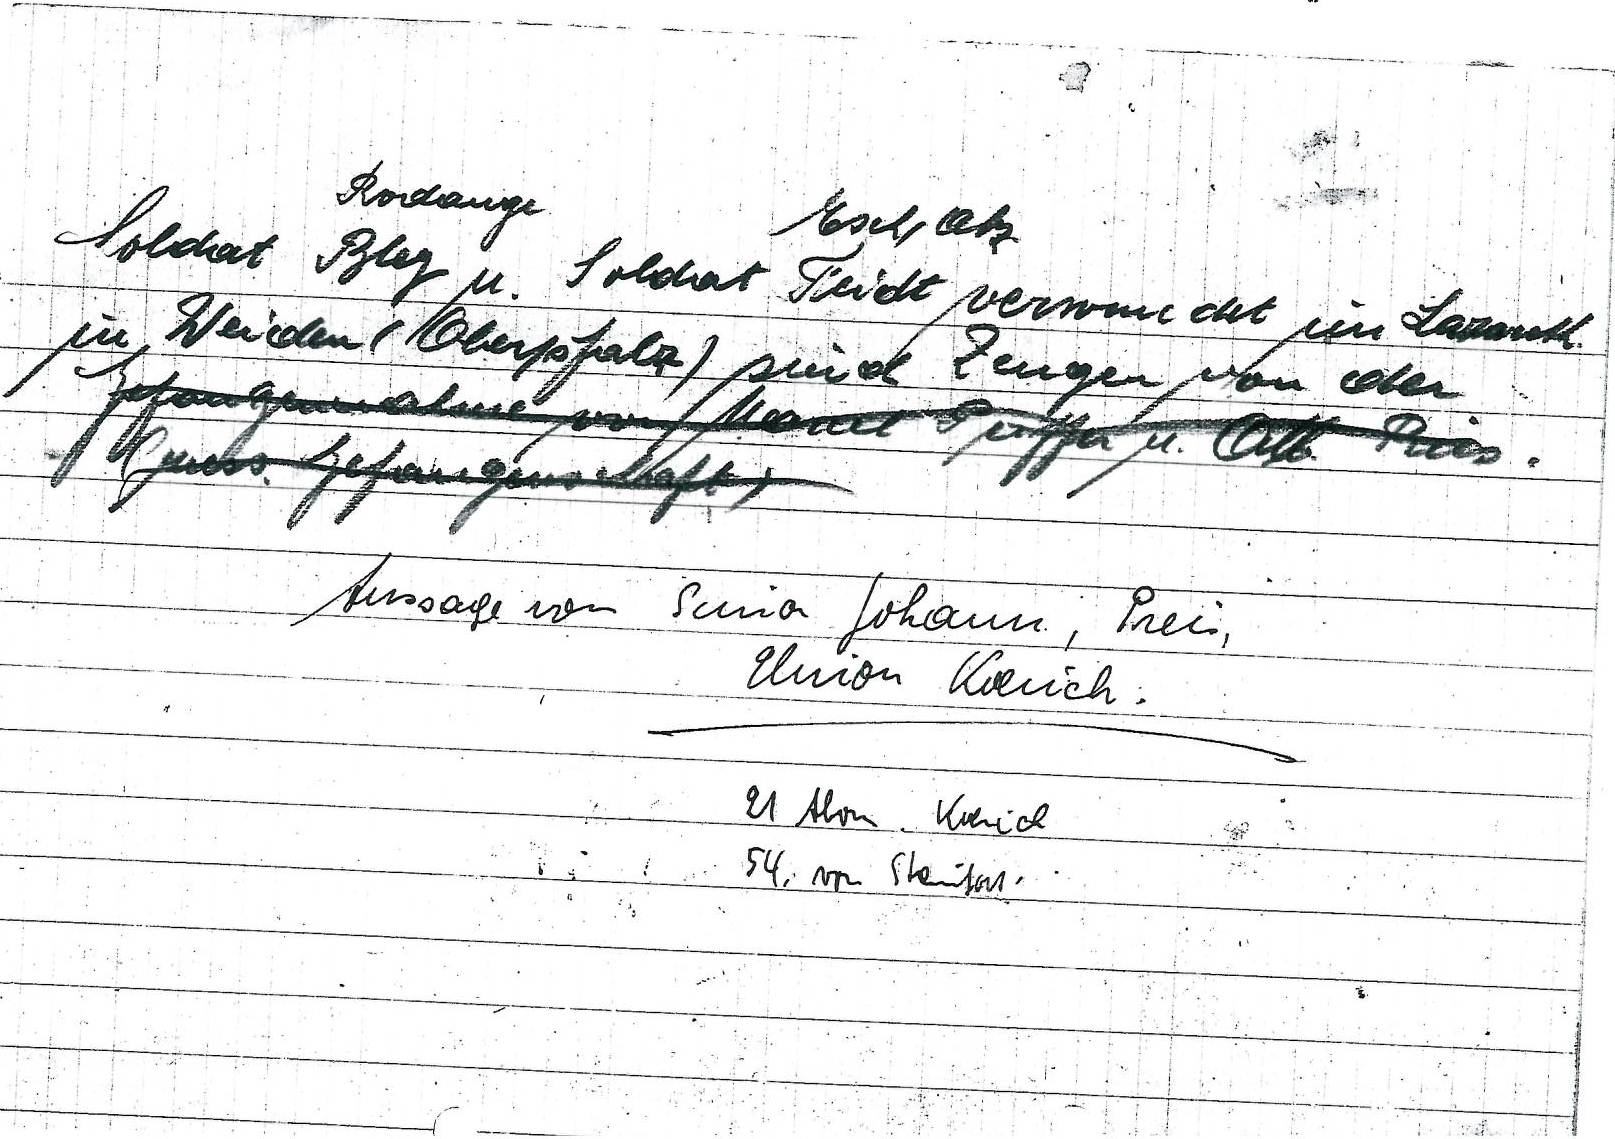 Rodange Esch/Alz
Soldat Bley u. Soldat Feidt verwundet im Lazareth
in Weiden (Oberpfalz) sind Zeugen von der
Gefangennahme von Marcel u. Alb. Pries.
(russ. Gefangenschaft)
Aussage von Johann, Preis,
Union Koerich.
21 Abon. Koerich
54. von Steinfort.